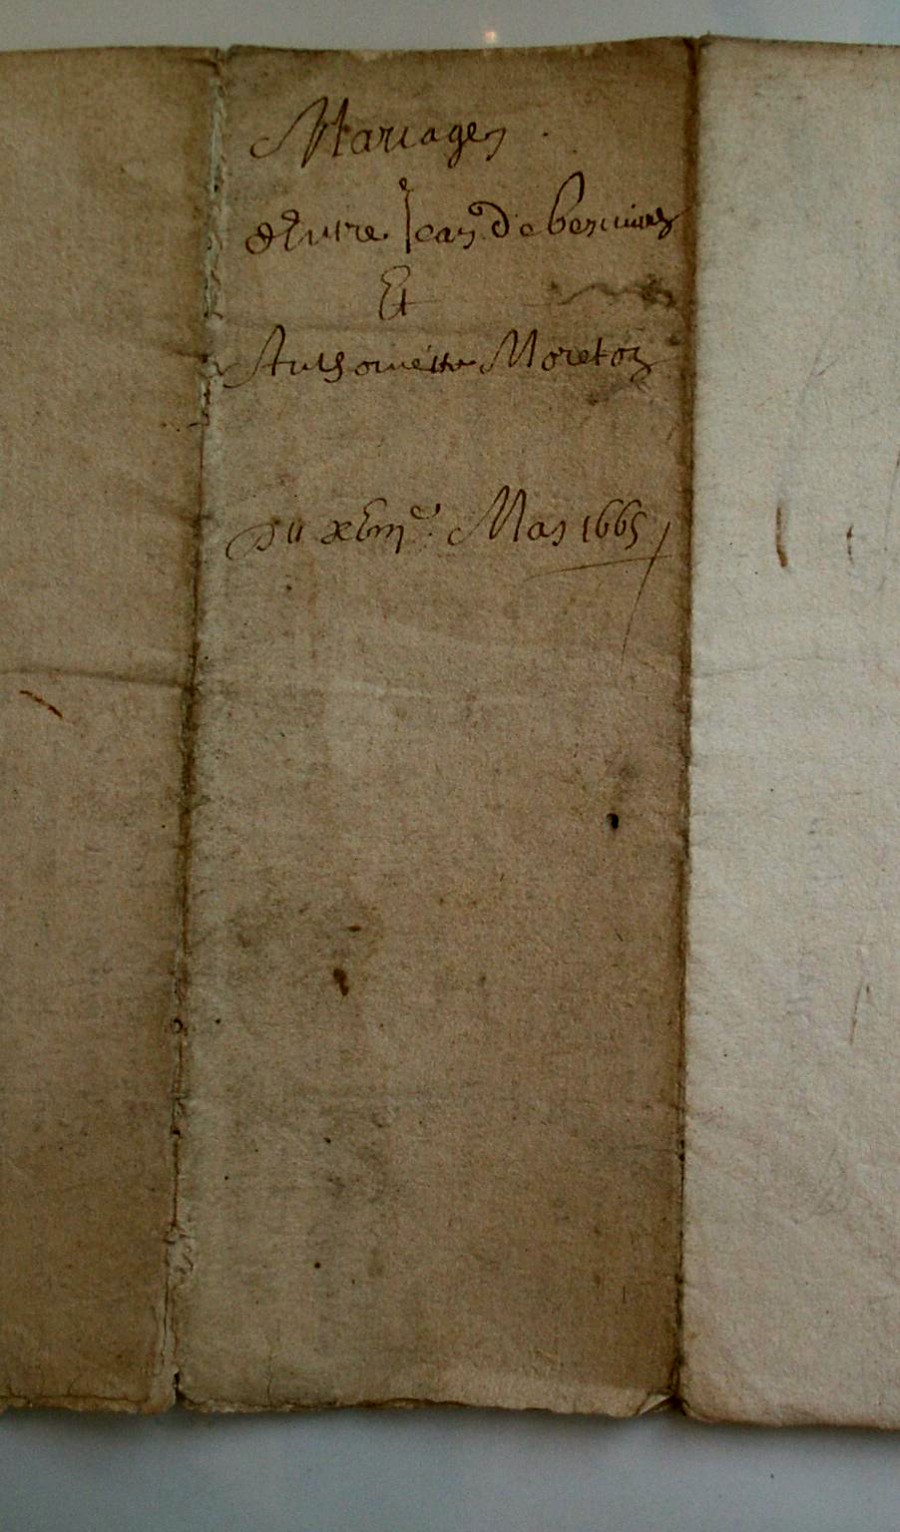 Mariage
d'Entre Jean De
Et
Anthoinette Moreton
Du xbme. May 1665